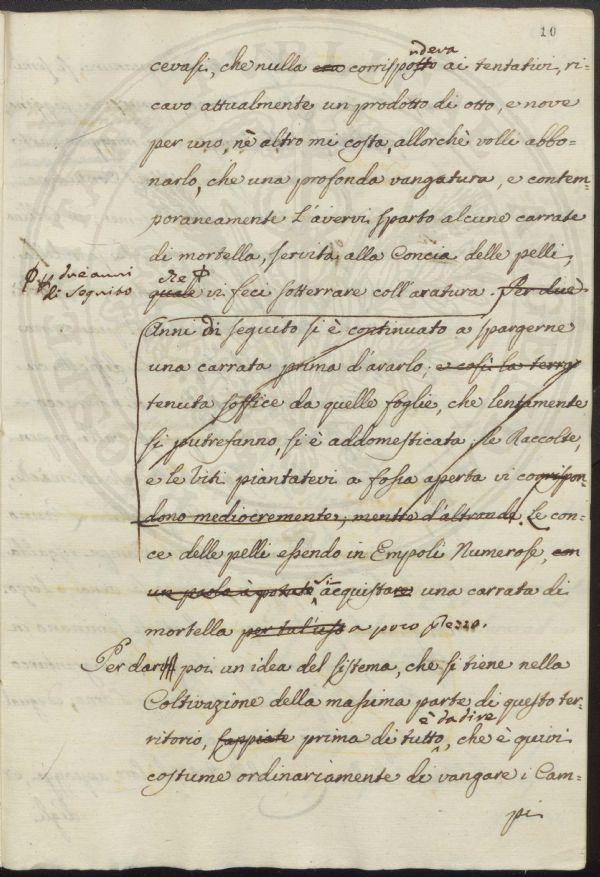 10
cevasi, che nulla era corrisposto ndeva ai tentativi, ri=
cavo attualmente un prodotto di otto, e nove
per uno, nè altro mi costa, allorchè volli abbo=
narlo, che una profonda vangatura, e contem=
poraneamente l'avervi sparto alcune carrate
di mortella, servita alla Concia delle pelli,
due anni
di seguito
quale che vi feci sotterrare coll'aratura. Per due
Anni di seguito si è continuato a spargerne
una carrata prima d'ararlo; e così la terra
tenuta soffice da quelle foglie, che lentamente
si putrefanno, si è addomesticata; le Raccolte,
e le Viti piantatevi a fossa aperta vi corrispon=
dono mediocremente; mentre d'altronde Le con=
ce delle pelli essendo in Empoli Numerose, con
un paolo si acquistare una carrata di
mortella per tal'uso a poco prezzo.
Per darvi poi un idea del sistema, che si tiene nella
Coltivazione della massima parte di questo ter=
ritorio, sappiate prima di tutto è da dire, che è quivi
costume ordinariamente di vangare i Cam=
pi